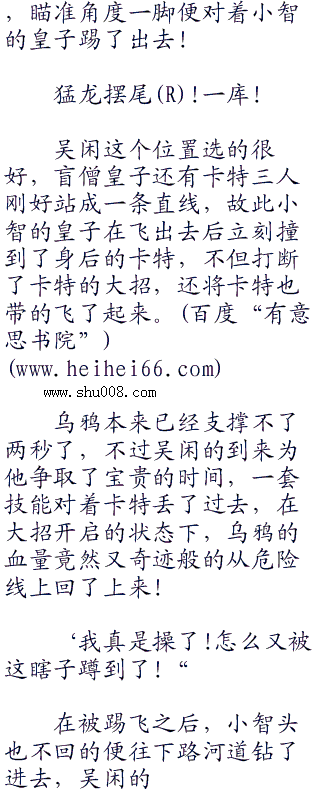 ，瞄准角度一脚便对着小智
的皇子踢了出去！
猛龙摆尾(R)!一库！
吴闲这个位置选的很
好，盲僧皇子还有卡特三人
刚好站成一条直线，故此小
智的皇子在飞出去后立刻撞
到了身后的卡特，不但打断
了卡特的大招，还将卡特也
带的飞了起来。(百度“有意
思书院”)
(www.heihei66.com)
www.shu008.com
乌鸦本来已经支撑不了
两秒了，不过吴闲的到来为
他争取了宝贵的时间，一套
技能对着卡特丢了过去，在
大招开启的状态下，乌鸦的
血量竟然又奇迹般的从危险
线上回了上来！
‘我真是操了!怎么又被
这瞎子蹲到了！“
在被踢飞之后，小智头
也不回的便往下路河道钻了
进去，吴闲的